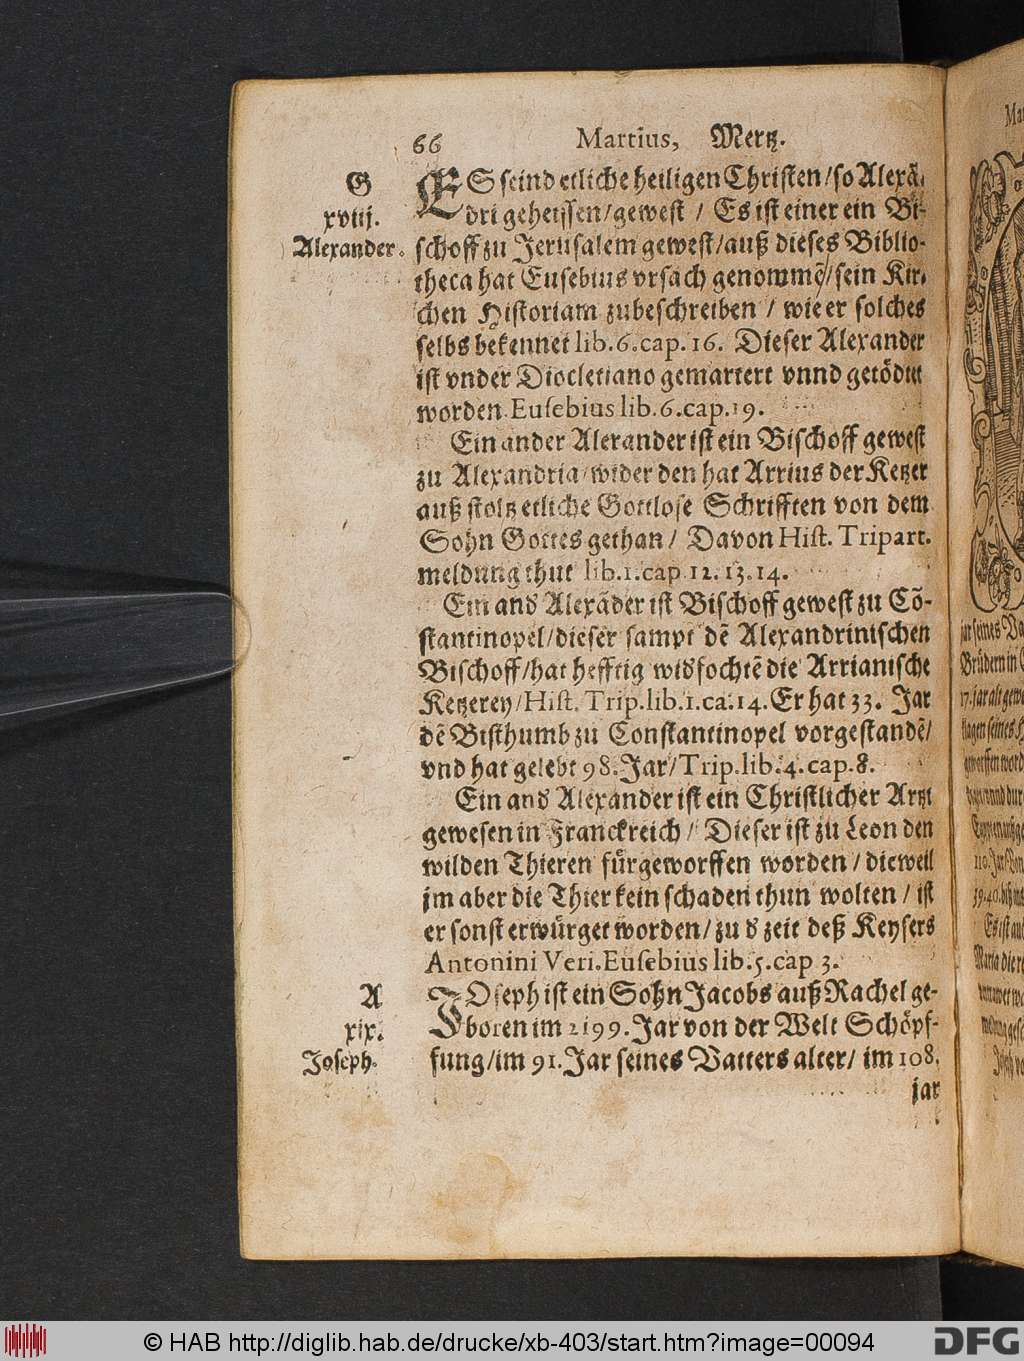 66 Martius, Mertz.
G
xviij.
Alexander.
ES seind etliche heiligen Christen/so Alexã-
dri geheissen/gewest / Es ist einer ein Bi-
schoff zu Jerusalem gewest/auß dieses Biblio-
theca hat Eusebius vrsach genommẽ/sein Kir-
chen Historiam zubeschreiben / wie er solches
selbs bekennet lib.6.cap.16. Dieser Alexander
ist vnder Diocletiano gemartert vnnd getödtet
worden Eusebius lib.6.cap.19.
Ein ander Alexander ist ein Bischoff gewest
zu Alexandria/wider den hat Arrius der Ketzer
auß stoltz etliche Gottlose Schrifften von dem
Sohn Gottes gethan / Davon Hist. Tripart.
meldung thut lib.1.cap.12.13.14.
Ein and Alexãder ist Bischoff gewest zu Cõ-
stantinopel/dieser sampt dẽ Alexandrinischen
Bischoff/hat hefftig wid fochtẽ die Arrianische
Ketzerey/Hist. Trip.lib.1.ca.14. Er hat 33. Jar
dẽ Bisthumb zu Constantinopel vorgestandẽ/
vnd hat gelebt 98. Jar/Trip.lib.4.cap.8.
Ein and Alexander ist ein Christlicher Artzt
gewesen in Franckreich / Dieser ist zu Leon den
wilden Thieren fürgeworffen worden / dieweil
jm aber die Thier kein schaden thun wolten / ist
er sonst erwürget worden/zu d zeit deß Keysers
Antonini Veri.Eusebius lib.5.cap 3.
A
xix.
Joseph.
JOseph ist ein Sohn Jacobs auß Rachel ge-
boren im 2199. Jar von der Welt Schöpf-
fung/im 91. Jar seines Vatters alter/ im 108.
jar
© HAB http://diglib.hab.de/drucke/xb-403/start.htm?image=00094
DFG